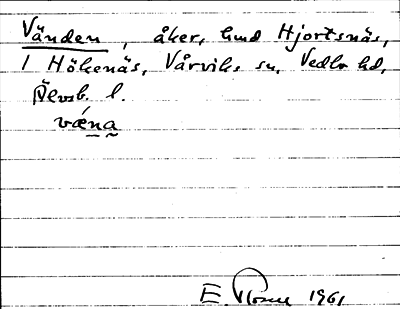 Vänden, åker, hmd Hjortsnäs,
1 Hökenäs, Vårviks sn, Vedbo hd,
Älvsb. l.
væna
E. 1961